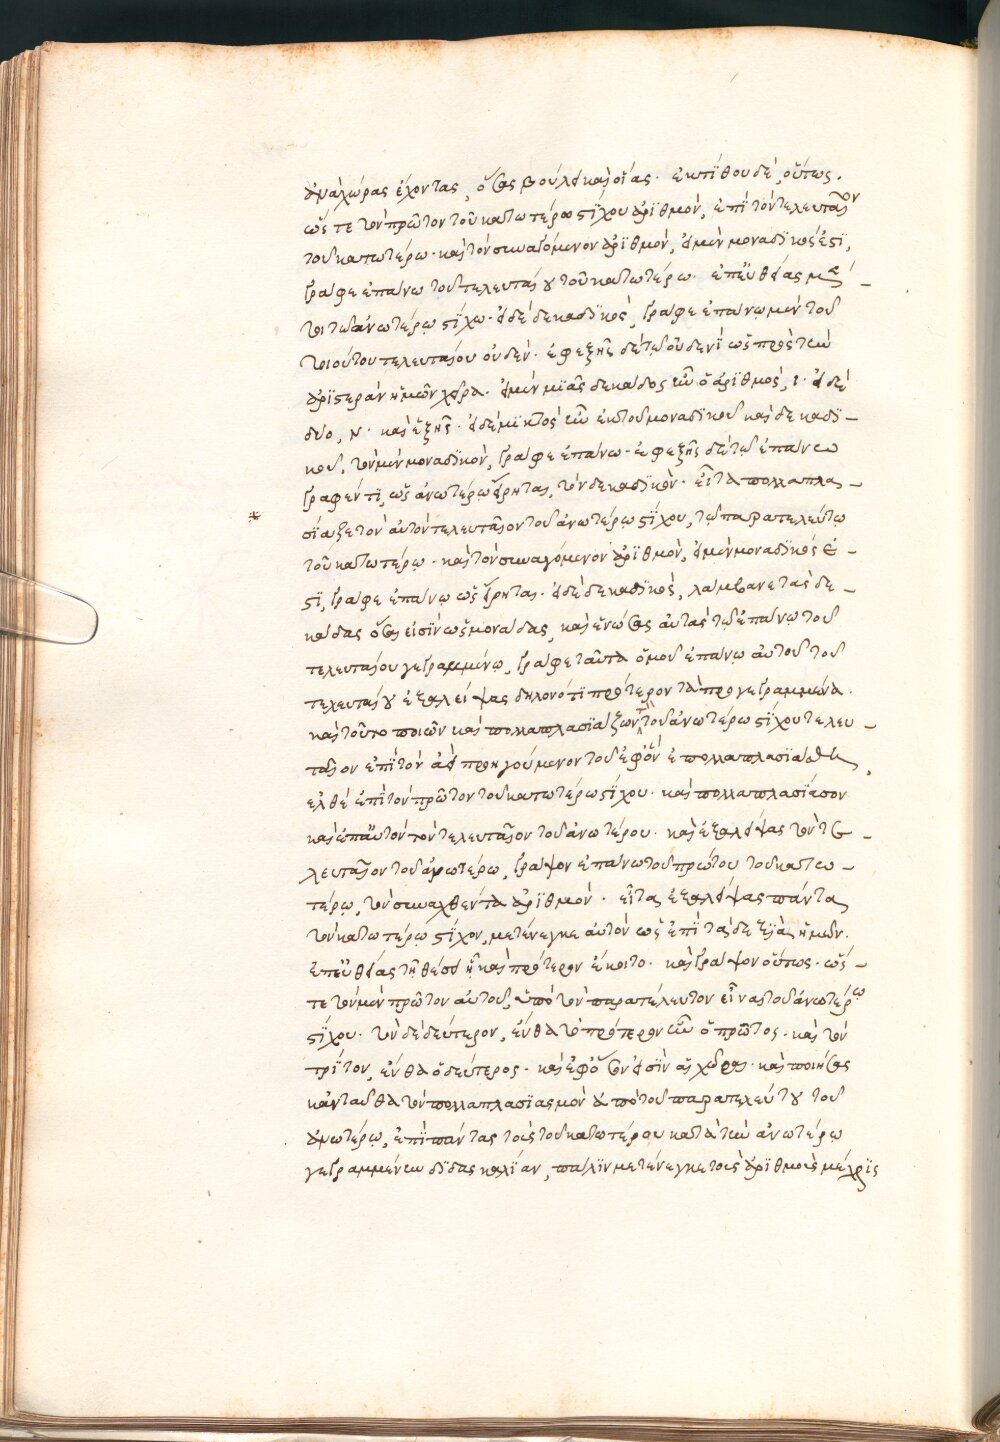 ἀνὰ χώρας ἔχοντας, ὅσας βούλει καὶ οἵας. ἐκτίθου δὲ, οὕτως.
ὥς τε τὸν πρῶτον τοῦ κατωτέρω στίχου ἀριθμὸν, ἐπὶ τὸν τελευταῖον
τοῦ κατωτέρω. καὶ τὸν συναγόμενον ἀριθμὸν, εἰ μὲν μοναδικός ἐστι,
γράφε ἐπάνω τοῦ τελευταίου τοῦ κατωτέρω. ἐπ' εὐθείας
τοι τῷ ἀνωτέρω στίχῳ. εἰ δὲ δεκαδικὸς, γράφε ἐπάνω μὲν τοῦ
τοιούτου τελευταίου οὐδέν. ἐφεξῆς δὲ τῷ οὐδενὶ ὡς πρὸς τὴν
ἀριστερὰν ἡμῶν χεῖρα. εἰ μὲν μιᾶς δεκάδος ἦν ὁ ἀριθμὸς, ι. εἰ δὲ
δύο, κ. καὶ ἑξῆς. εἰ δὲ μικτὸς ἦν ἐκ τοῦ μοναδικοῦ καὶ δεκαδι-
κοῦ, τὸν μὲν μοναδικὸν, γράφε ἐπάνω. ἐφεξῆς δὲ τῷ ἐπάνω
γραφέντι, ὡς ἀνωτέρω εἴρηται, τὸν δεκαδικὸν. εἶτα πολλαπλα-
* σίαζε τὸν αὐτὸν τελευταῖον τοῦ ἀνωτέρω στίχου, τῷ παρατελεύτῳ
τοῦ κατωτέρω. καὶ τὸν συναγόμενον ἀριθμὸν, εἰ μὲν μοναδικός ἐ-
στι, γράφε ἐπάνω ὡς εἴρηται. εἰ δὲ δεκαδικὸς, λάμβανε τὰς δε-
κάδας ὅσαι εἰσὶν ὡς μονάδας, καὶ ἑνώσας αὐτὰς τῷ ἐπάνω τοῦ
τελευταίου γεγραμμένῳ, γράφε ταῦτα ὁμοῦ ἐπάνω αὐτοῦ τοῦ
τελευταίου ἐξαλείψας δηλονότι πρότερον τὰ προγεγραμμένα.
καὶ τοῦτο ποιῶν καὶ πολλαπλασιάζων τὸν τοῦ ἀνωτέρω στίχου τελευ-
ταῖον ἐπὶ τὸν ἀεὶ προηγούμενον τοῦ ἐφ' ὃν ἐπολλαπλασιάσθη,
ἐλθὲ ἐπὶ τὸν πρῶτον τοῦ κατωτέρω στίχου. καὶ πολλαπλασίασον
καὶ ἐπ' αὐτὸν τὸν τελευταῖον τοῦ ἀνωτέρου. καὶ ἐξαλείψας τὸν τε-
λευταῖον τοῦ ἀνωτέρω, γράψον ἐπάνω τοῦ πρώτου τοῦ κατω-
τέρω, τὸν συναχθέντα ἀριθμόν. εἶτα ἐξαλείψας πάντα
τὸν κατωτέρω στίχον, μετένεγκε αὐτὸν ὡς ἐπὶ τὰ δεξιὰ ἡμῶν.
ἐπ' εὐθείας τῇ θέσει ᾗ καὶ πρότερον ἔκειτο. καὶ γράψον οὕτως. ὥς-
τε τὸν μὲν πρῶτον αὐτοῦ, ὑπὸ τὸν παρατέλευτον εἶναι τοῦ ἀνωτέρω
στίχου. τὸν δὲ δεύτερον, ἔνθα τὸ πρότερον ἦν ὁ πρῶτος. καὶ τὸν
τρίτον, ἔνθα ὁ δεύτερος. καὶ ἐφ' ὅσον εἰσὶν αἱ χῶραι. καὶ ποιήσας
κἀνταῦθα τὸν πολλαπλασιασμὸν ἀπὸ τοῦ παρατελεύτου τοῦ
ἀνωτέρω, ἐπὶ πάντας τοὺς τοῦ κατωτέρου κατὰ τὴν ἀνωτέρω
γεγραμμένην διδασκαλίαν, πάλιν μετένεγκε τοὺς ἀριθμοὺς μέχρις